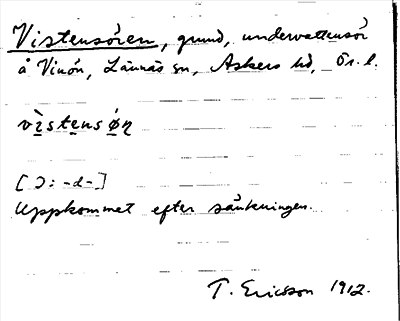 Vistensören, grund, undervattensör
å Vinön, Lännäs sn, Askers hd, Ör. l.
vìstensøn
[Ɔ: -d-]
Uppkommet efter sänkningen.
T. Ericsson 1912.